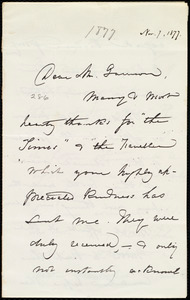 1877
Nov. 7, 1877.
Dear Mr. Garrison,
286
Many & most
hearty thanks for "the
Times" & the Traveller
which your highly ap-
preciated kindness has
sent me. They were
duly received, — & only
not instantly acknowl